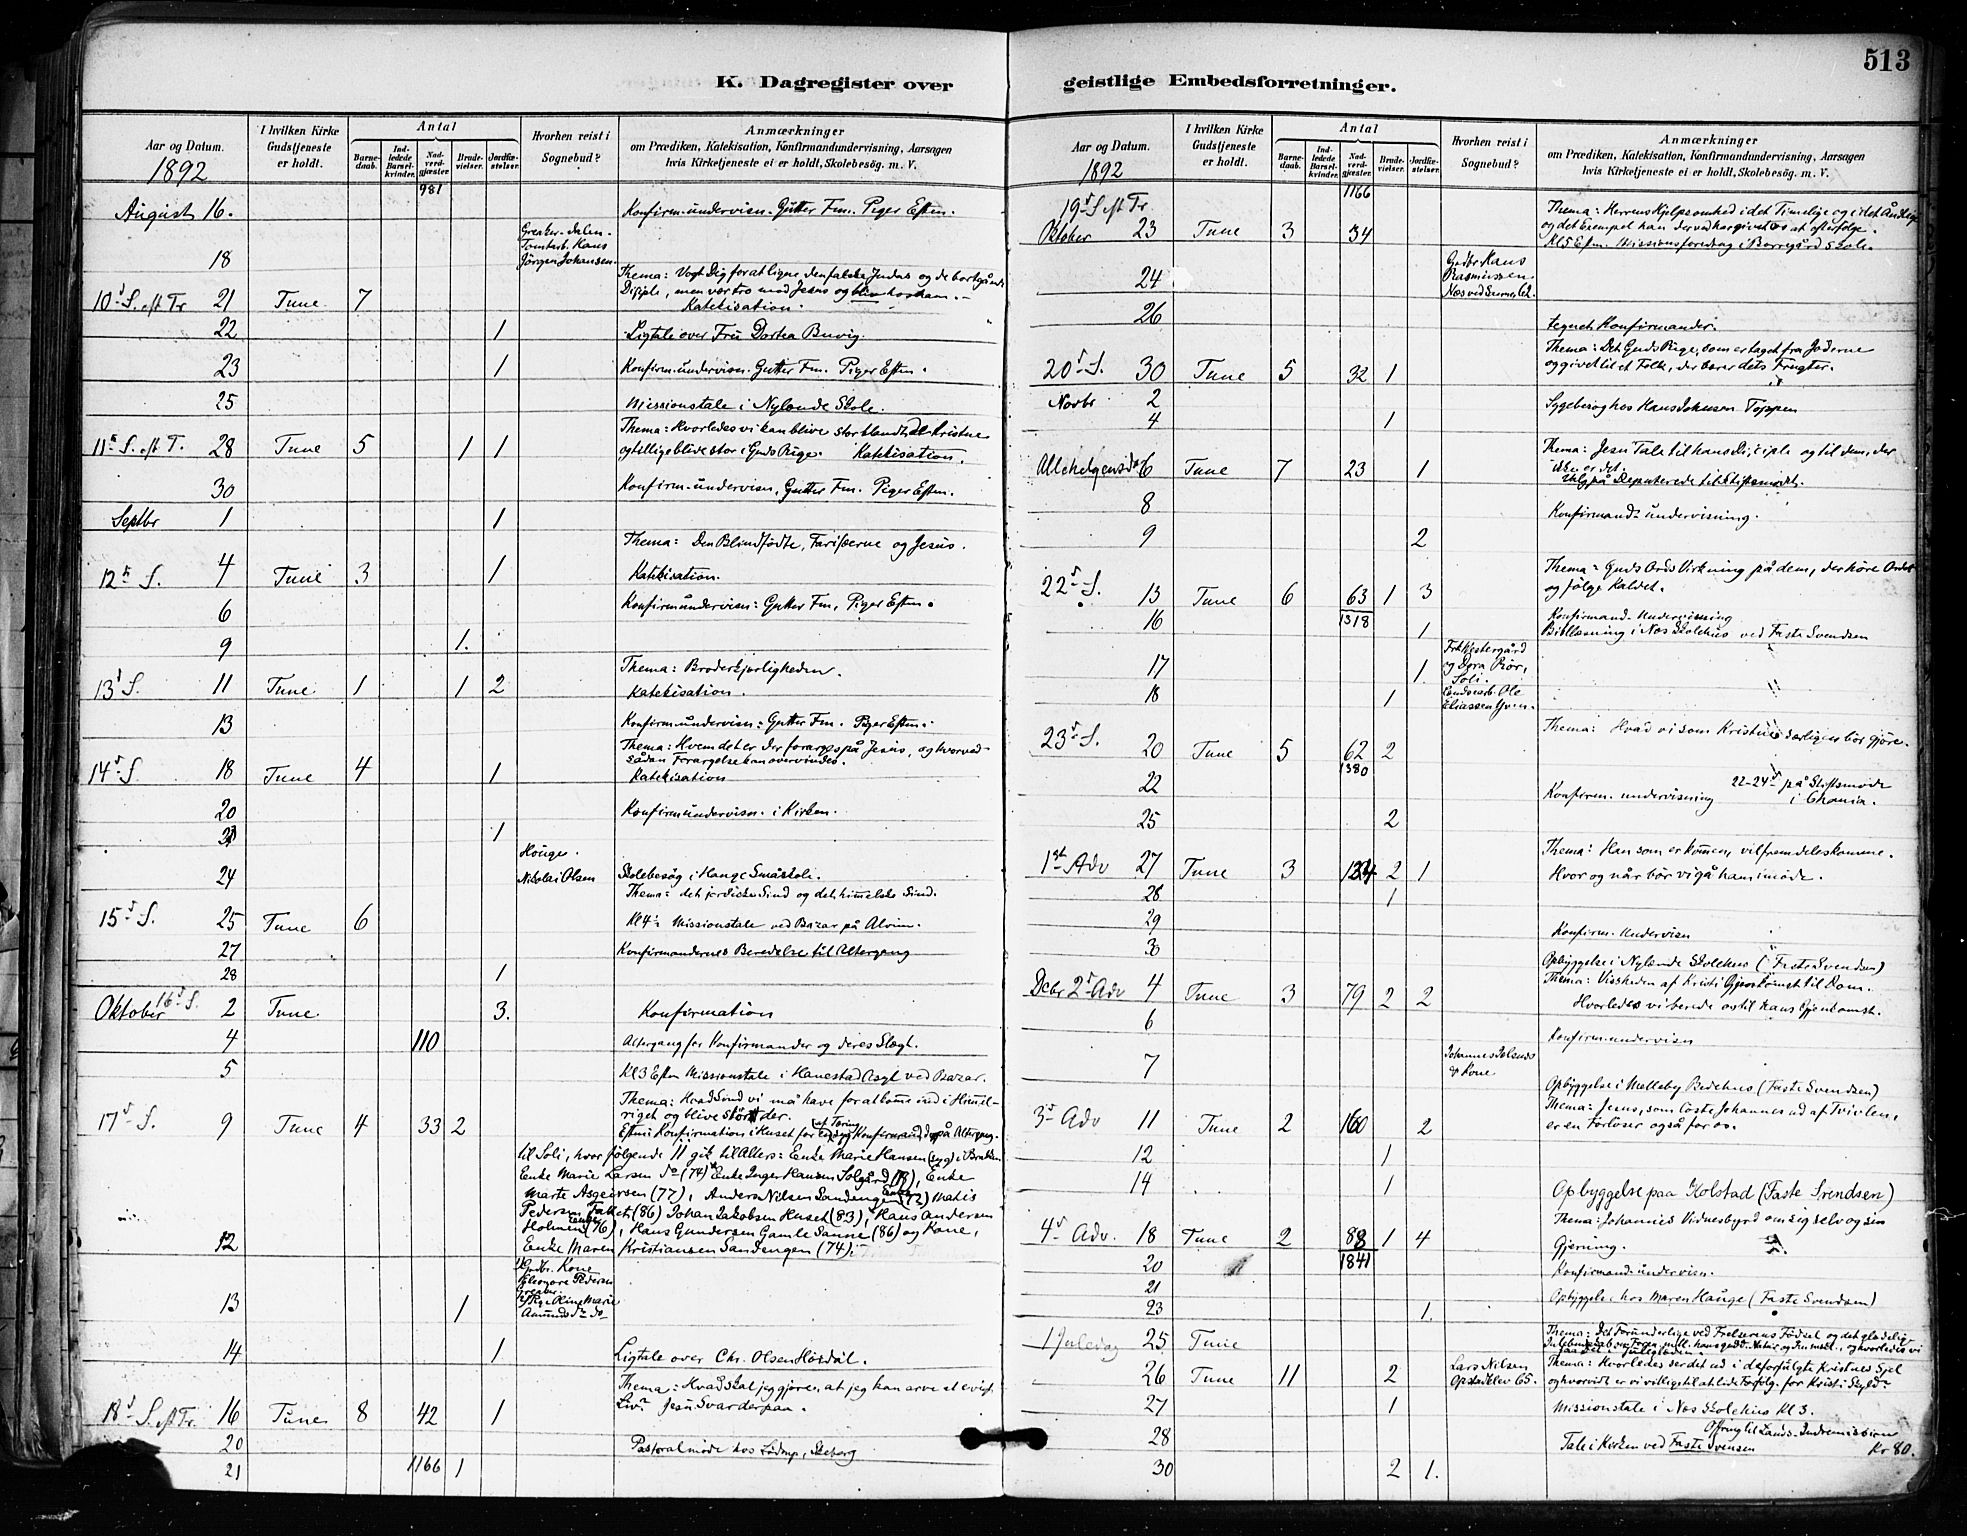 513
K. Dagregister over
geistlige Embedsforretninger.
Aar og Datum.
1892
I hvilken Kirke Gudstjeneste er holdt.
Antal
Barnedaab.
Indledede Barselkvinder.
Nadverdgjæster.
Brudevielser.
Jordfæstelser.
Hvorhen reist i Sognebud?
Anmærkninger
om Prædiken, Katekisation, Konfirmandundervisning, Aarsagen
hvis Kirketjeneste ei er holdt, Skolebesøg. m. V.
981
August 16. Konfirm.undervisn. Gutter Fm. Piger Eftm.
18 Jörgen Johansen.
Thema: Vogt Dig for at ligne den falske Judas og de bortgående
10 S. eft Tr 21 Tune 7 Disciple, men vær tro mod Jesus og bliv hos ham.
Katekisation.
22 1 Ligtale over Fru Dortea Buvig.
23 1 Konfirm.undervisn. Gutter Fm. Piger Eftm.
25 Missionstale i Nylænde Skole.
Thema: Hvorledes vi kan blive stor blandt de Kristne
11 S. eft T. 28 Tune 5 1 1 og tillige blive stor i Guds Rige. Katekisation.
30 Konfirm.undervisn. Gutter Fm. Piger Eftm.
Septbr 1 1
Thema: Den Blindfödte, Farisæerne og Jesus.
12 S. 4 Tune 3 1 Katekisation.
6 Konfirmundervisn: Gutter Fm, Piger Eftm.
9 1.
Thema: Broderkjærligheden.
13 S. 11 Tune 1 1 2 Katekisation.
13 Konfirm.undervisn: Gutter Fm. Piger Eftm.
Thema: Hvem det er der forarges på Jesus, og hvorved
sådan Forargelse kan overvindes.
14 S. 18 Tune 4 1 Katekisation
20 Konfirmundervisn. i Kirken.
1
24 Nikolai Olsen Skolebesøg i Hauge Småskole.
Thema: det jordiske Sind og det himmelske Sind.
15 S. 25 Tune 6 Kl 4 Missionstale ved Bazar på Alvim.
27 Konfirmandernes Beredelse til Altergang
28 1
Oktober 16 S. 2 Tune 3. Konfirmation
4 110 Altergang for Konfirmander og deres Slægt.
5 Kl 3 Eftm Missionstale i Hanestad Asyl ved Bazar.
Thema: Hvad Sind vi må have for at komme ind i Himmelriget og blive stor der.
17 S. 9 Tune 4 33 2
til Soli, hvor følgende 11 gik til Alters: Enke Marie Hansen (syg) i Brækken
Enke Marie Larsen do (74) Enke Inger Hansen Solgård (78), Enke
Marte Asgersen (77), Anders Nilsen Sandengen (72) Matis
Pedersen (86) Johan Jakobsen Huset (83), Hans Andersen
Holmen (76), Hans Gundersen Gamle Sanne (86) og Kone,
12 Enke Maren Kristiansen Sandengen (74).
13 1
14 1 Ligtale over Chr. Olsen Hasdal.
Thema: Hvad skal jeg gjøre, at jeg kan arve et evigt
18 S eft Tr. 16 Tune 8 42 1 Liv? Jesu Svar derpaa.
20 Pastoralmøde hos Lödrup, Skeberg
21 1166 1
Aar og Datum.
1892
I hvilken Kirke Gudstjeneste er holdt.
Antal
Barnedaab.
Indledede Barselkvinder.
Nadverdgjæster.
Brudevielser.
Jordfæstelser.
Hvorhen reist i Sognebud?
Anmærkninger
om Prædiken, Katekisation, Konfirmandundervisning, Aarsagen
hvis Kirketjeneste ei er holdt, Skolebesøg. m. V.
1166
19 S eft Tr Thema: Herrens Hjelpsomhed i det Timelige og i det Åndelige
Oktober 23 Tune 3 34 og det Exempel han derved har givet os at efterfølge.
Kl 5 Eftm. Missionsforedrag i Borregård Skole.
24 Grdbr Hans Rasmussen
26 tegnet Konfirmander.
Thema: Det Guds Rige, som er taget fra Jøderne
20 S. 30 Tune 5 32 1 og givet til et Folk, der bærer dets Frugter.
Novbr 2 Sygebesøg hos Hans Johnsen Toppen
4 1
Thema: Jesu Tale til hans Disciple og til dem, der
Allehelgensd. 6 Tune 7 23 1 ikke er det.
Valg på Deputerede til Stiftsmødet.
8 Konfirmandundervisning.
9 2
Thema: Guds Ords Virkning på dem, der høre Ordet
22 S. 13 Tune 6 63 1 3 og følge Kaldet.
1318
16 1 Konfirmand-Undervisning
Bibellæsning i Næs Skolehus ved Faste Svendsen
17 1
18 1 Ole Eliassen
Thema: Hvad vi som Kristne særligen bør gjøre.
23 S. 20 Tune 5 62 2
1380
22 Konfirm. undervisning 22-24 på Stiftsmøde i Chrania.
25 2
Thema: Han som er kommen, vil fremdeles komme.
1st Adv 27 Tune 3 124 2 1 Hvor og når bør vi gå ham imøde.
28 1
29 Konfirm. Undervisn
30 Opbyggelse i Nylænde Skolehus (Faste Svendsen)
Thema: Vissheden af Kristi Gjenkomst til Dom.
Decbr 2 Adv 4 Tune 3 79 2 2 Hvorledes vi berede os til hans Gjenkomst.
6 Konfirm.undervisn
7 Johannes Kone
Opbyggelse i Melleby Bedehus (Faste Svendsen)
3 Adv 11 Tune 2 160 2 Thema: Jesus, som løste Johannes ud af Tvivlen,
er en Forløser også for os.
12 1
14 1 Opbyggelse paa Holstad (Faste Svendsen)
Thema: Johannes Vidnesbyrd om sig selv og sin
4 Adv. 18 Tune 2 88 1 4 Gjerning.
1841
20 Konfirmand-undervisn.
21 Opbyggelse hos Maren Hauge (Faste Svendsen)
23 1.
1 Juledag 25 Tune Thema: Det Forunderlige ved Frelserens Fødsel og det glædelige
26 Tune 11 2 Lars Nilsen Opstadbler 65. Thema: Hvorledes ser det ud i de forfulgte Kristnes Sjel
og hvorvidt er vi villige til at lide Forfølg. for Kristi Skyld?
27 1 Missionstale i Næs Skolehus Kl 3.
28 Tale i Kirken ved Faste Svensen Offring til Lands-Indremission Kr 80.
30 2 1.